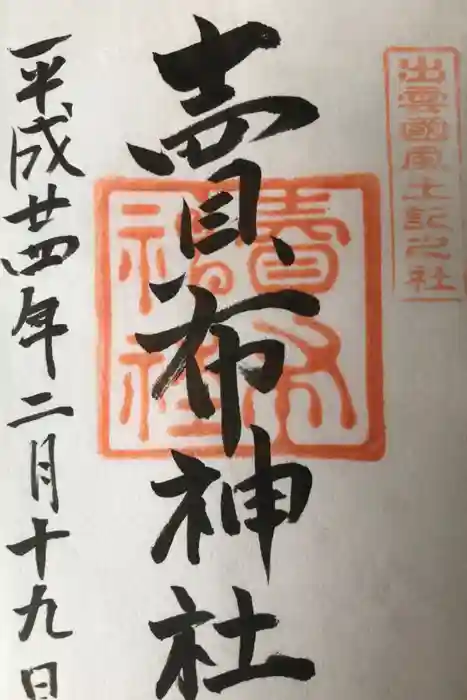 出雲國風土記之社
賣布神社
平成廿四年二月十九日